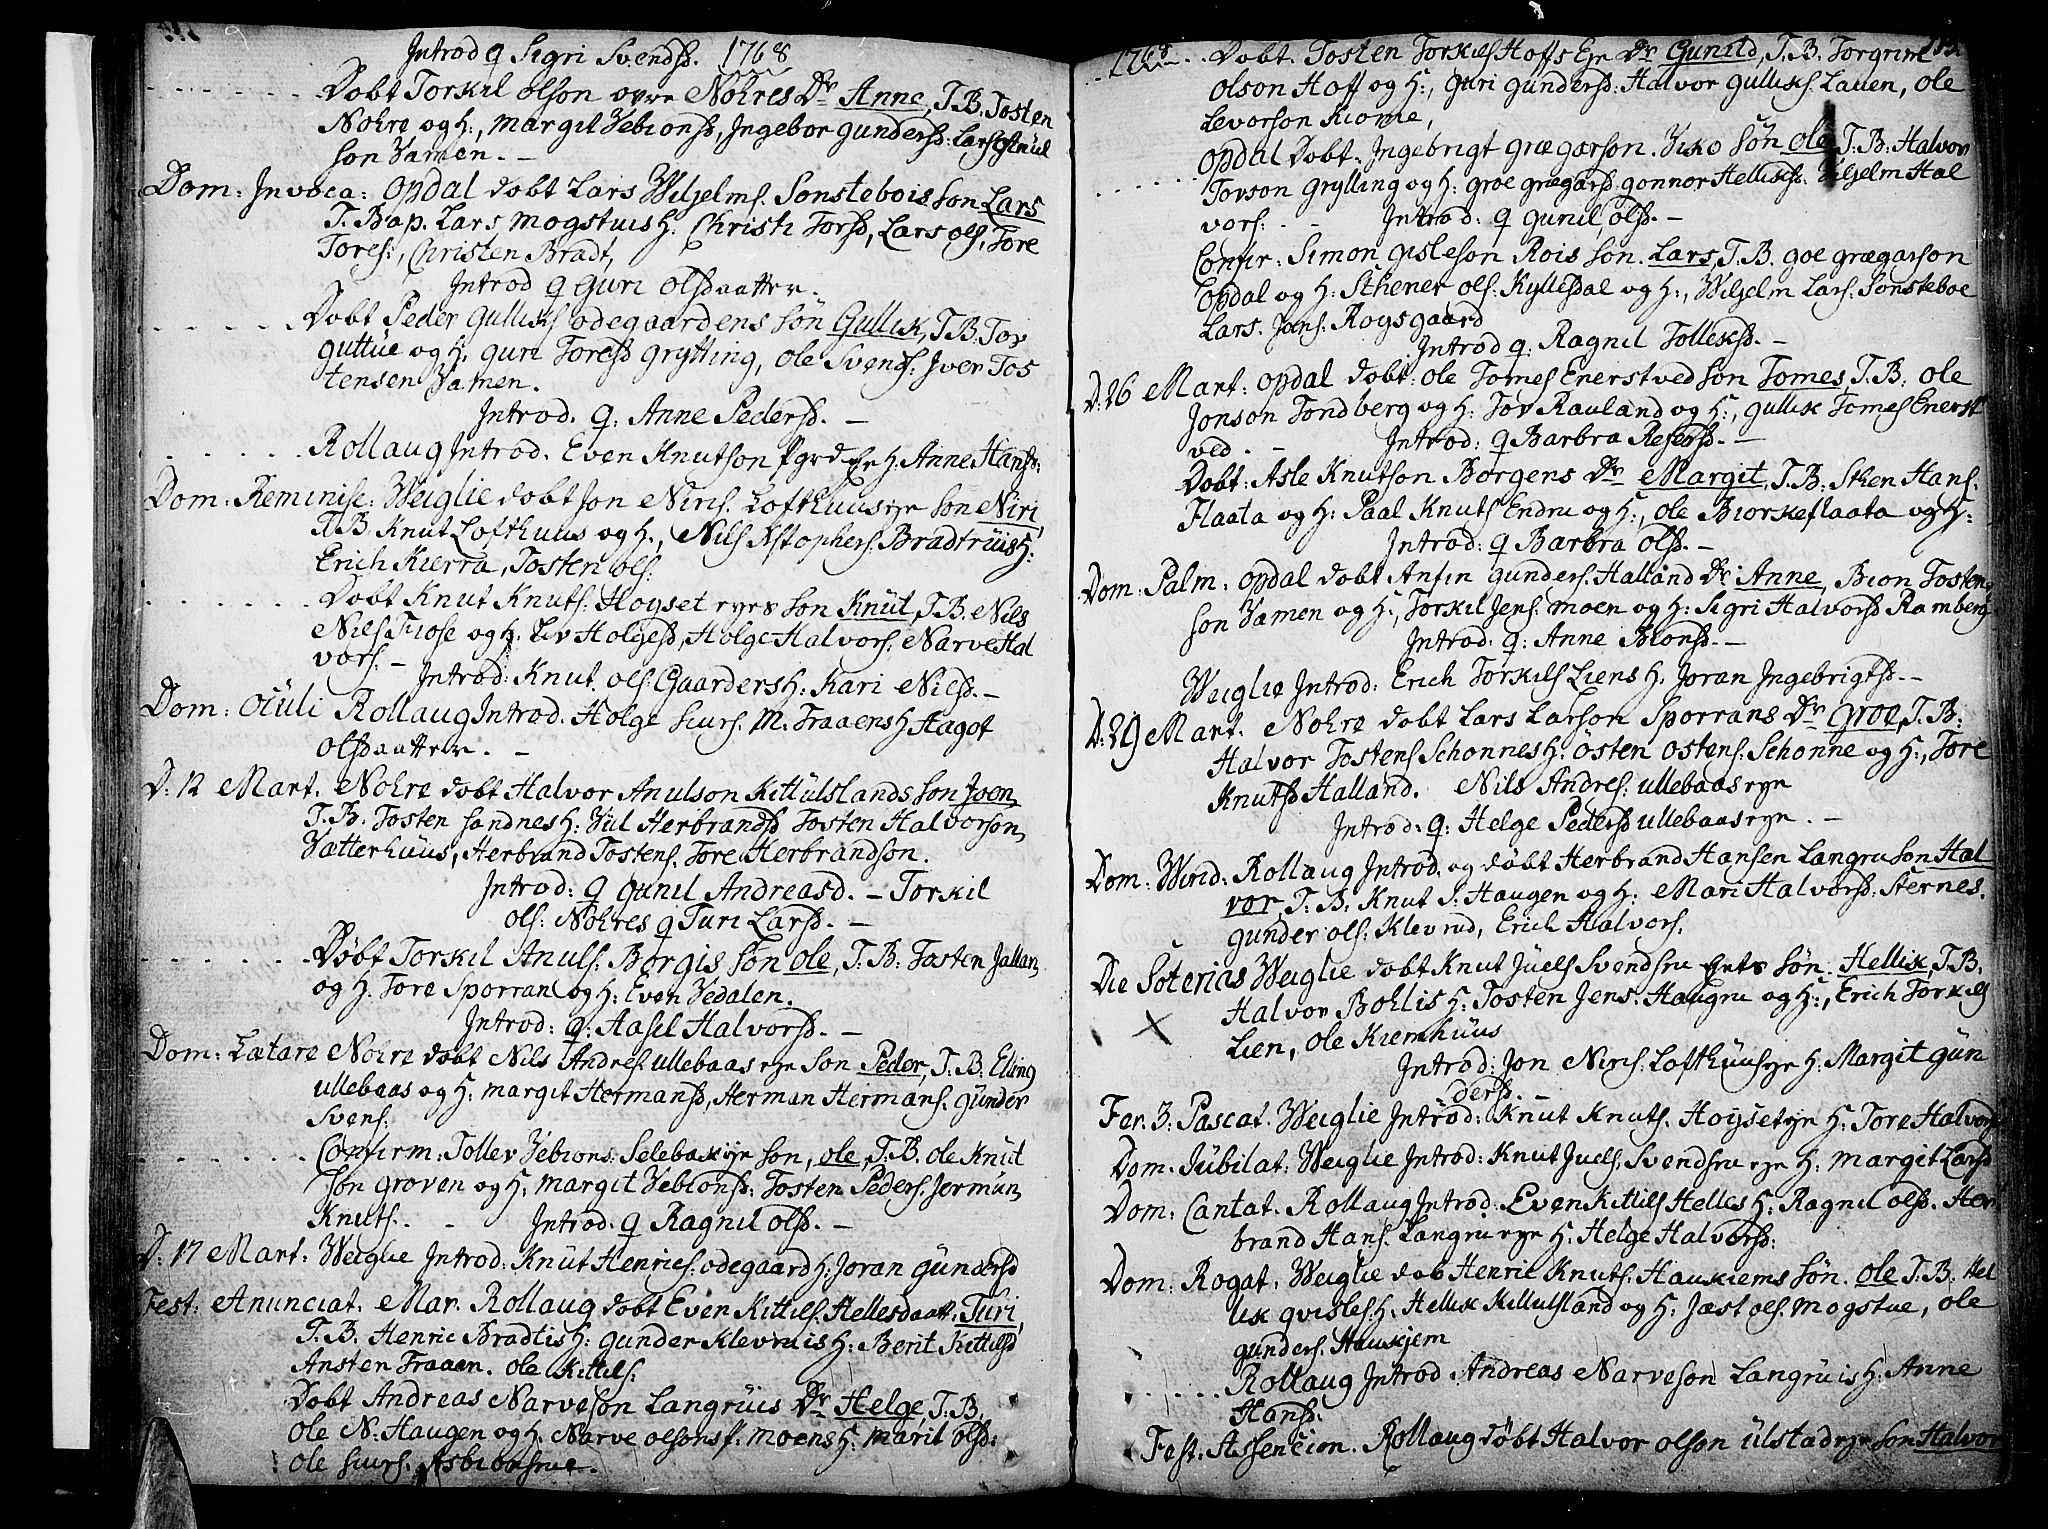 Introd q Sigri Svendsd. 1768
Døbt Torkil olson øvre Nohres Dr Anne, T.B. Tosten
Nohre og H:, Margit Vebionsd, Ingebor gundersd: Lars Knul
son Vamen. -
Dom: Invoca: Opdal døbt Lars Wiljelms. Sønstebois søn Lars
T. Bap. Lars Mogstuis H. Christi Torsd, Lars ols, Tore
Tores:, Christen Bradt,
Introd q Guri olsdaatter.
Døbt Peder Gulliks ødegaardens søn Gullik, T.B. Tor
guttue og H. guri Toresd grytting, ole Svends: Iver Tos
tensen Vamen.
Introd. q: Anne Pedersd. -
Rollaug Introd. Even Knutson H. Anne Hansd:
Dom: Reminisc: Weiglie døbt Jon Niris. Lofthuus eje søn Niri,
T.B. Knut Lofthuus og H., Nils Xstophers. Bradtruis H:
Erich Kierra, Tosten ols:
Døbt Knut Knuts: Hoyset ejes søn Knut, T.B. Nils
Nils Fiose og H. Liv Holgesd, Holge Halvors. Narve Hal
vors. - Introd: Knut ols. Gaarders H: Kari Nilsd. -
Dom: Oculi Rollaug Introd. Holge siurs. M. Traaens H Hagot
olsdaatter. -
D: 12 Mart. Nohre døbt Halvor Anulson Kittulslands søn Joen,
T.B. Tosten sandnes H: Herbrandsd Tosten Halvorson,
Vatterhuus, Herbrand Tostens. Tore Herbrandson.
Introd: q Gunil Andreasd. - Torkil
ols: Nohres q Turi Larsd. -
Døbt Torkil Anuls: Borgis søn ole, T.B: Tosten Jallan
og H. Tore Sporran og H: Even Vedalen.
Introd: q: Aasel Halvorsd. -
Dom: Lætare Nohre døbt Nils Andres ullebaas eje søn Peder, T.B: Elling
ullebaas og H: margit Hermansd, Herman Hermans. gunder
Svens:
Confirm: Tollev Vebions: Selebak eje søn, ole, T.B. ole Knut
søn groven og H: margit Vebionsd: Tosten Peders. Jermun,
Knuts. Introd. q Ragnil olsd. -
D: 17 Mart: Weiglie Introd: Knut Henrics. ødegaard H: Joran gundersd
Fest: Anunciat. Mar. Rollaug døbt Even Kittils. Hellesdaatt. Turi,
T.B. Henric Bradtis H: gunder Klevruis H: Berit Kittilsd
Ansten Traaen. ole Kittils:
Døbt Andreas Narveson Langruis Dr Helge, T.B.
ole N. Haugen og H. Narve olsons f. moens H. marit olsd:
ole siurs. Asbiørnsrue.
1768 Døbt. Tosten Torkils Hoffs Eje Dr Gunild, T.B. Torgrim
olson Hoff og H:, guri gundersd: Halvor gulliks. Lauen, ole
Levorson Kiome,
Opdal Døbt. Ingebrigt grægarson. søn ole, T.B. Halvor
Torson grytting og H: groe grægarsd gonnor Helliksd. Viljelm Hal
vors: - Introd: q gunil olsd. -
Confir: Simon gisleson Rois søn. Lars, T.B. goe grægarson
Opdal og H: Sthener ols: Kyllesdal og H:, Wiljelm Lars. Sønsteboe
Lars. Jons. Roysgaard
Introd q. Ragnil Tolleksd. -
D: 26 Mart: Opdal døbt: ole Tomes Enerstved søn Tomes, T.B: ole
Jonson Tondberg og H: Tor Rauland og H:, gullik Tomes Enerst
ved. - Introd: q Barbra Resersd. -
Døbt: Asle Knutson Borgens Dr Margit, T.B: Sthen Hans.
Flaata og H: Paal Knuts Endru og H:, ole Biorkeflaata og H:
Introd: q Barbra olsd. -
Dom: Palm: Opdal døbt Anfin gunders. Halland Dr Anne, Bion Tosten
son Vamen og H:, Torkil Jens. moen og H: Sigri Halvorsd Ramberg
Introd: q: Anne Bionsd. -
Weiglie Introd: Erich Torkils Liens H. Joran Ingebrigtsd. -
D: 29 Mart. Nohre døbt Lars Larson Sporrans Dr Groe, T.B:
Halvor Tostens Schonnes H: Østen Ostens. Schonne og H:, Tore
Knutsd Halland. Nils Andres: ullebaas eje
Introd: q: Helge Pedersd ullebaas eje. -
Dom: Wirid: Rollaug Introd. og døbt Herbrand Hansen Langru søn Hal
vor, T.B. Knut I. Haugen og H: Mari Halvorsd: Sternes.
gunder ols: Klevrud, Erich Halvors.
Die Soterias Weiglie døbt Knut Juels Svendsru Eiets søn. Hellik, T.B.
Halvor Bohlis H: Tosten Jens. Haugru og H:, Erich Torkils
Lien, ole Kiemhuus
Introd: Jon Niris: Lofthuus eje H: Margit Gun
dersd. -
Fer. 3. Pascat. Weiglie Introd: Knut Knuts. Hoyset eje H: Tore Halvorsd
Dom: Jubilat: Weiglie Introd: Knut Juels, Svendsru eje H: margit Larsd
Dom: Cantat. Rollaug Introd: Even Kittils Helles H: Ragnil olsd. Her
brand Hans. Langru eje H: Helge Halvorsd:
Dom: Rogat: Weiglie døb Henric Knuts. Haukiems søn. ole T.B: Hel
lik qvisles H: Hellik Killulsland og H: Jæst ols. mogstue, ole
gunders. Haukjem
Rollaug Introd Andreas Narveson Langruis H: Anne
Hansd:
Fest. Assencion. Rollaug døbt Halvor olson ulstad eje søn Halvor